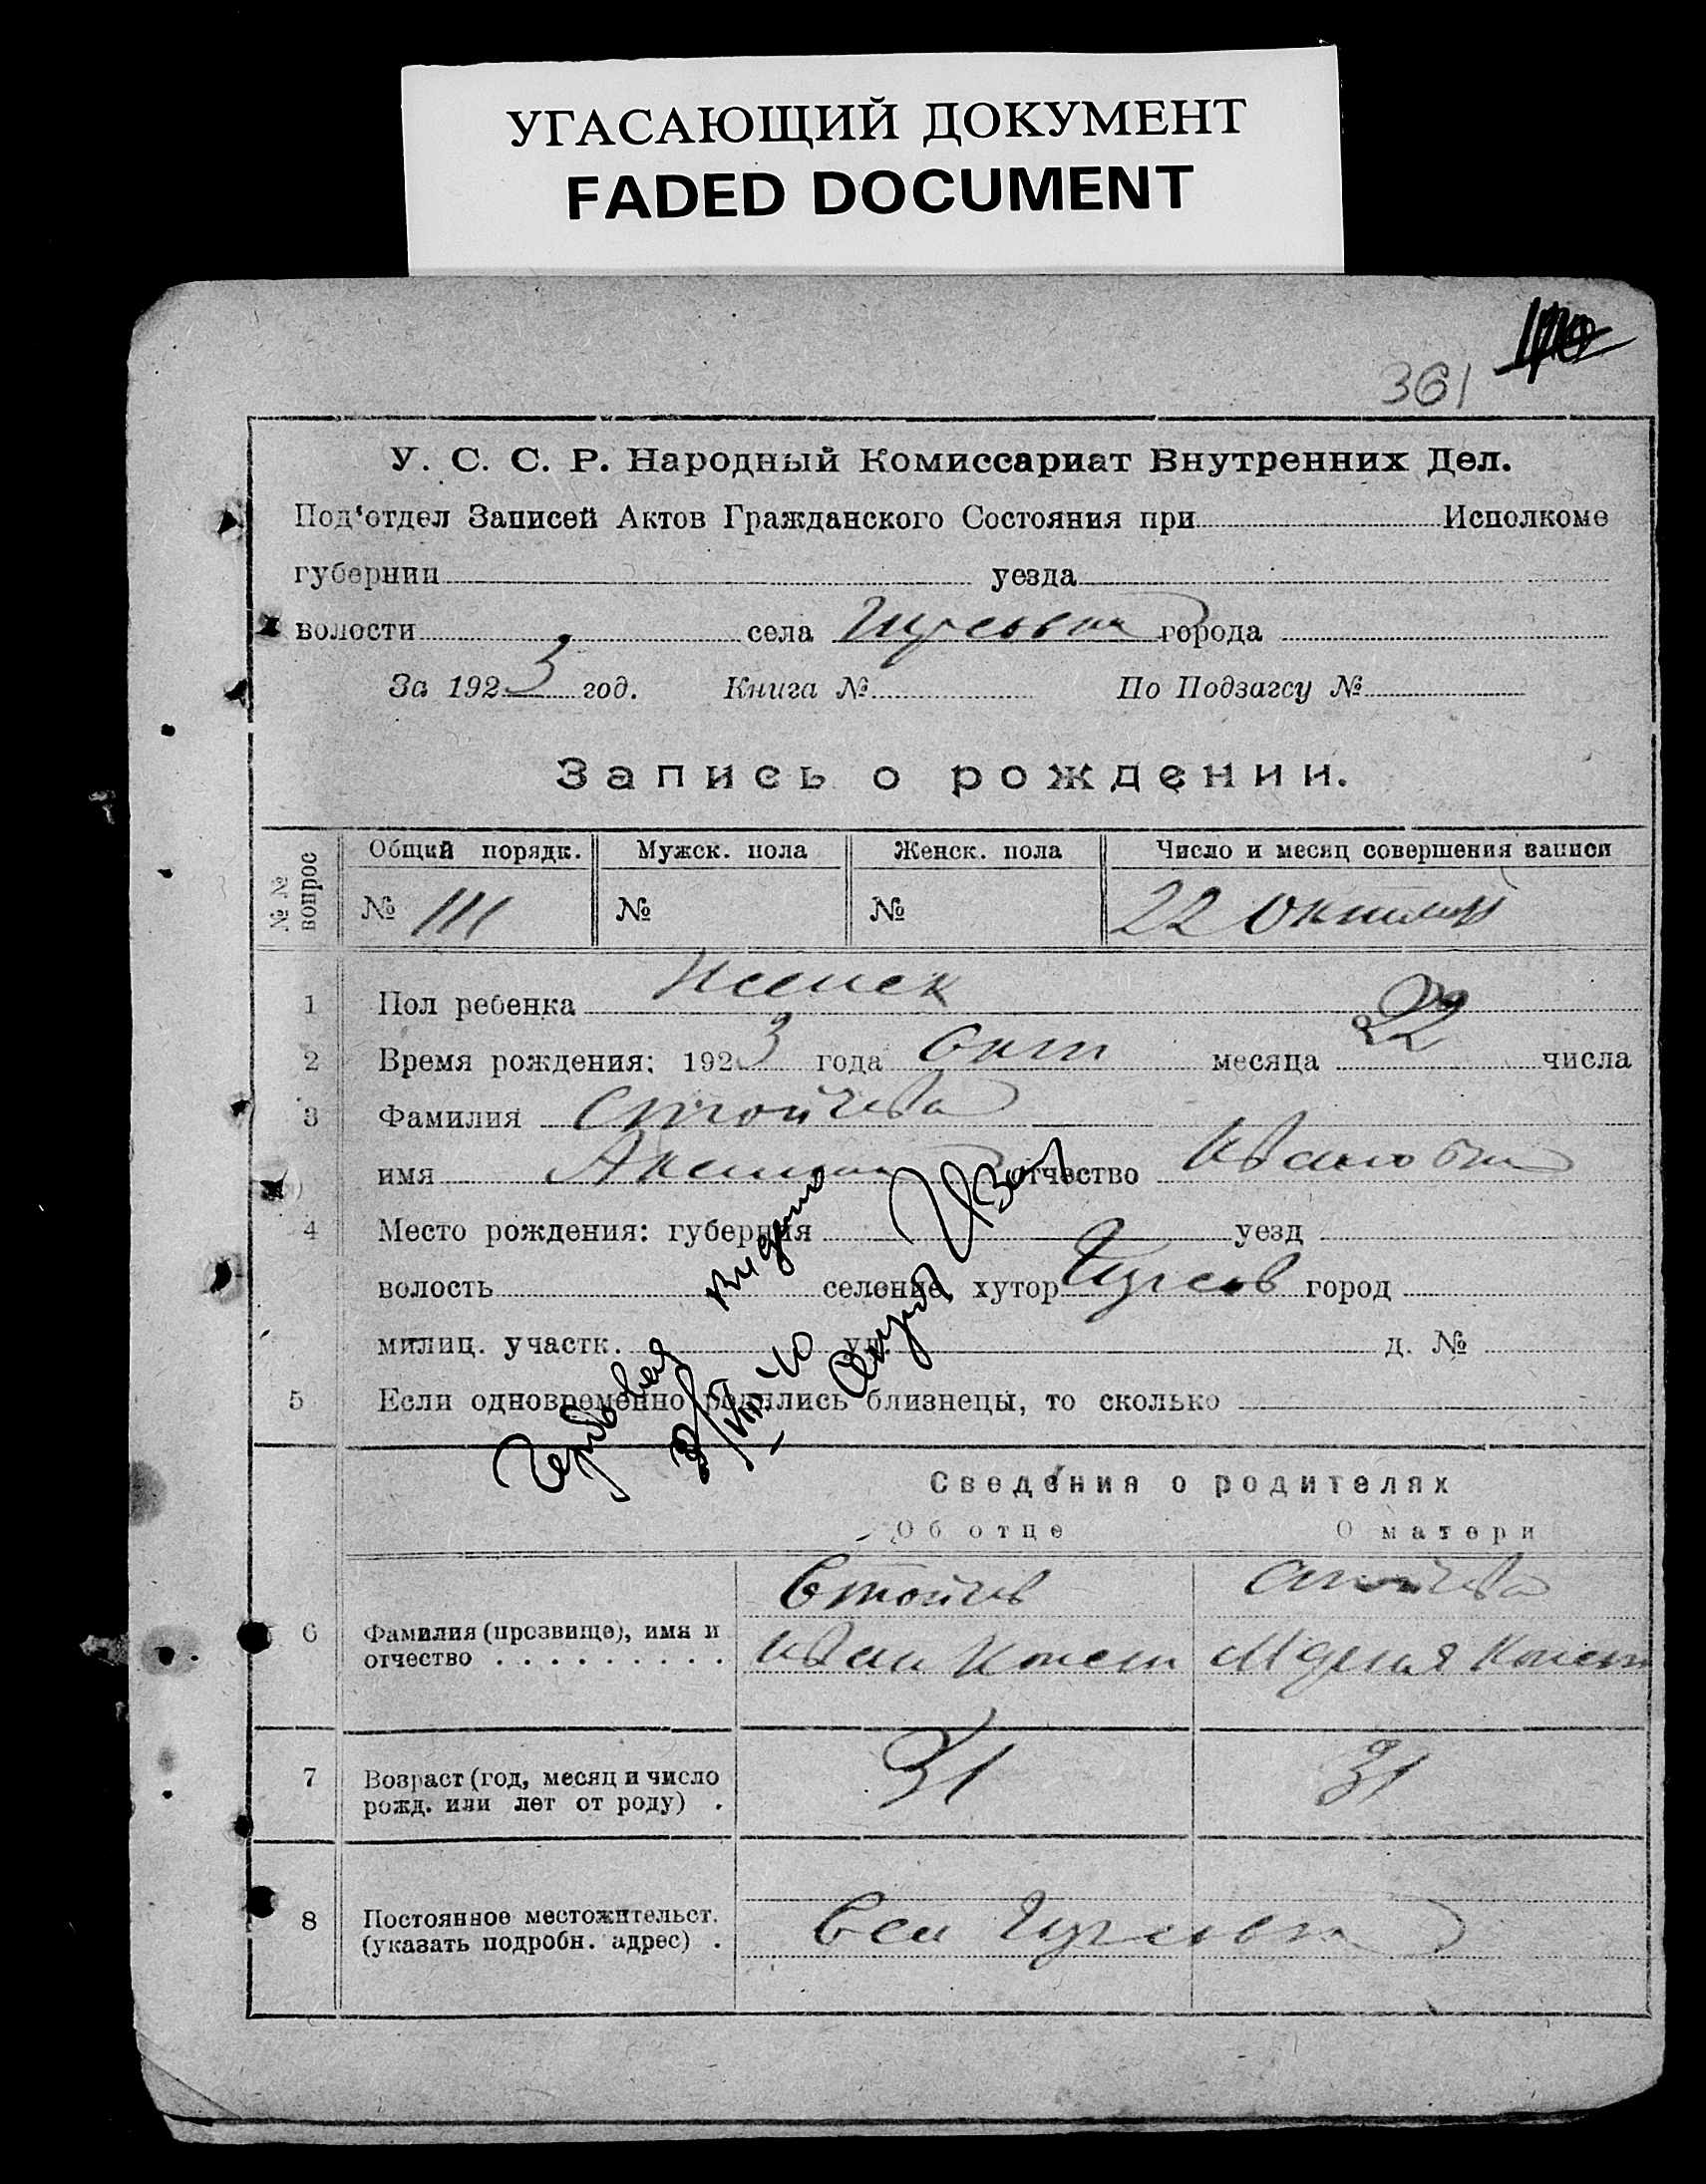 УГАСАЮЩИЙ ДОКУМЕНТ
FADED DOCUMENT
361
У. С. С. Р. Народный Комиссариат Внутренних Дел.
Под‘отдел Записей Актов Гражданского Состояния при Исполкоме
губернии уезда
волости села города
За 1923 год. Книга № По Подзагсу №
Запись о рождении.
№ № вопрос
Общий порядк. Мужск. пола Женск. пола Число и месяц совершения записи
№ 111 № № 22 Октября
1 Пол ребенка Женск
2 Время рождения: 1923 года Окт месяца 22 числа
3 Фамилия Стойчева
имя отчество Ивановна
4 Место рождения: губерния уезд
волость селение, хутор город
милиц. участк. ул. д. №
5 Если одновременно родились близнецы, то сколько
Сведения о родителях
Об отце О матери
Стойчев Стойчева
6 Фамилия (прозвище), имя и
отчество . . . . . . . . . Иван Конст Конст
7 Возраст (год, месяц и число
рожд. или лет от роду) . 31 31
8 Постоянное местожительст.
(указать подробн. адрес) .